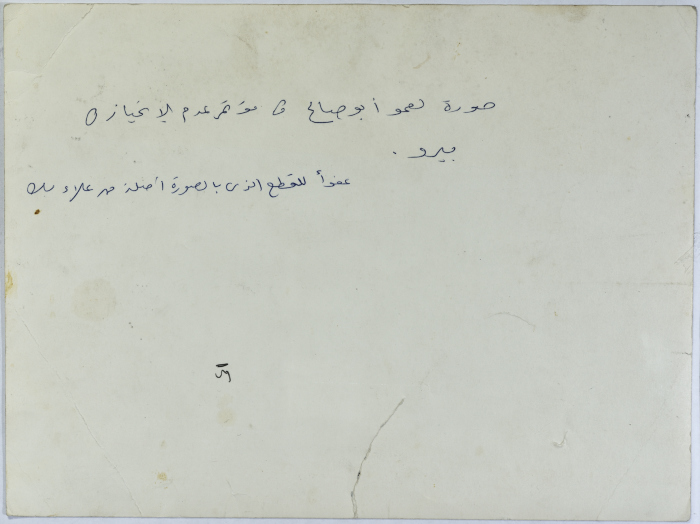 صورة لعمو أبو صالح في مؤتمر عدم الإنحياز في
بيرو.
عفواً للقطع الذي بالصورة أصله من علاء